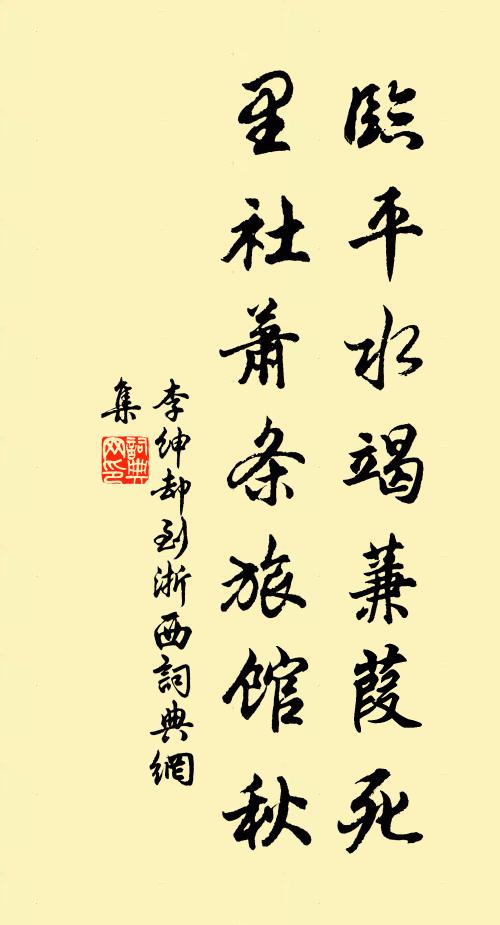 臨平水竭蒹葭死
里社蕭条旅馆秋
李紳却到浙西詞典網
集
詞典
网印